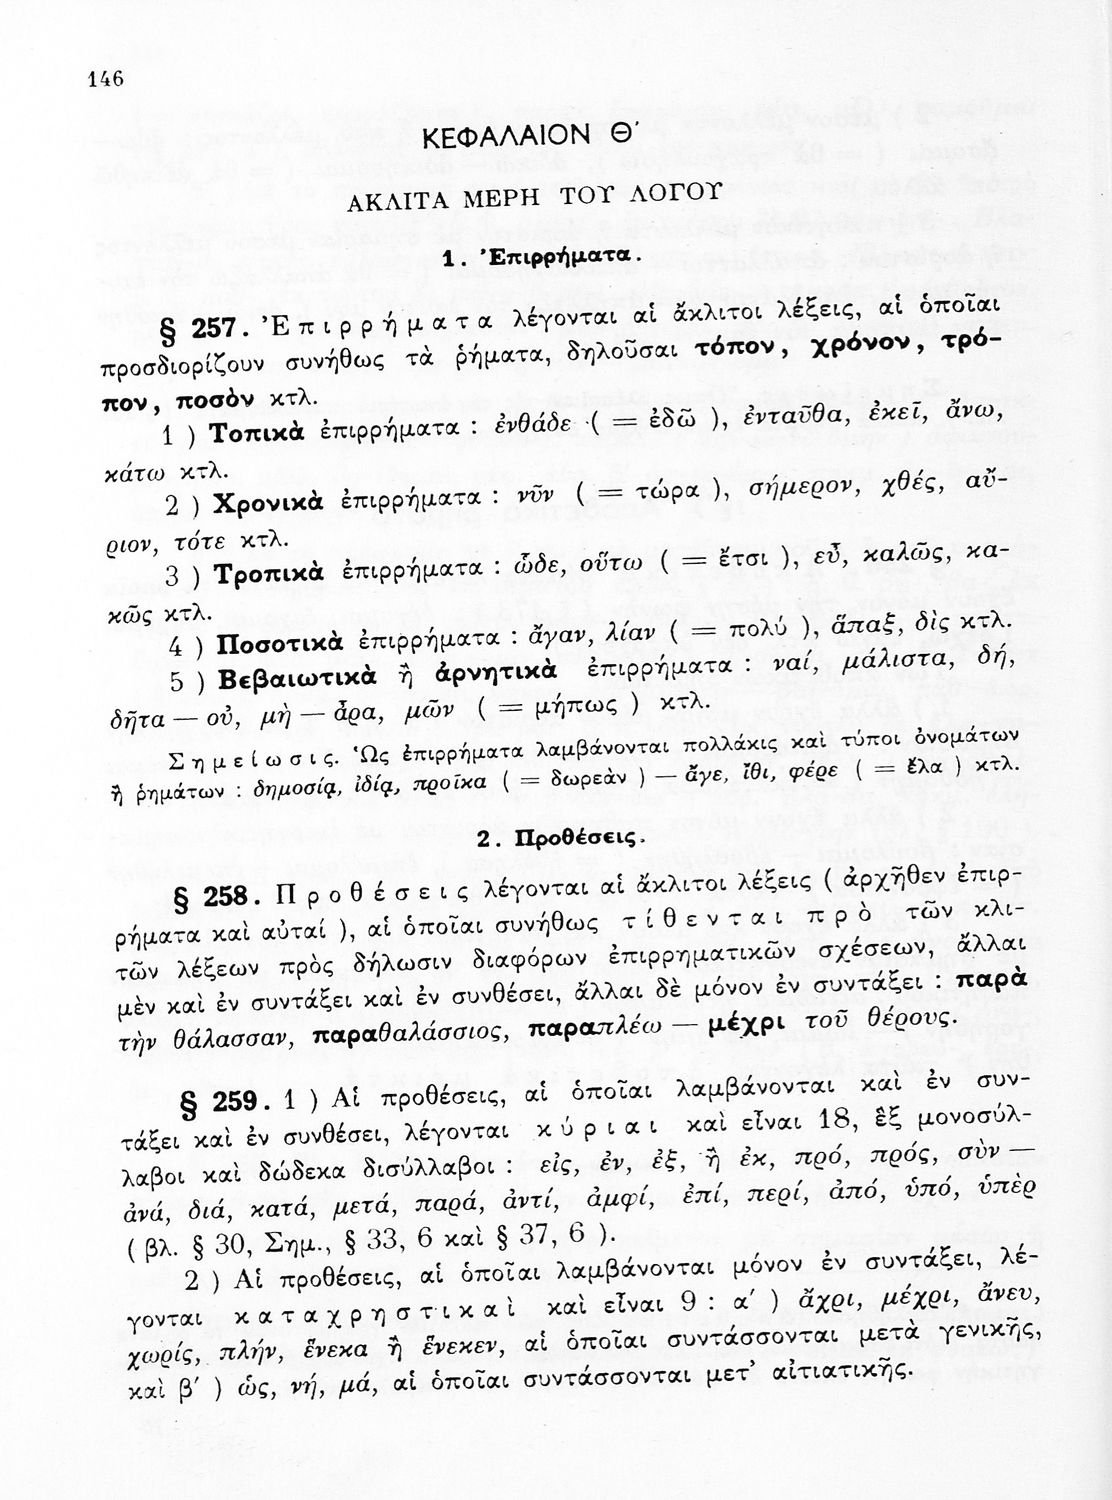 146
ΚΕΦΑΛΑΙΟΝ Θ΄
ΑΚΛΙΤΑ ΜΕΡΗ ΤΟΥ ΛΟΓΟΥ
1. Ἐπιρρήματα.
§ 257. Ἐπιρρήματα λέγονται αἱ ἄκλιτοι λέξεις, αἱ ὁποῖαι
προσδιορίζουν συνήθως τὰ ῥήματα, δηλοῦσαι τόπον, χρόνον, τρό-
πον, ποσὸν κτλ.
1 ) Τοπικὰ ἐπιρρήματα : ἐνθάδε ( = ἐδῶ ), ἐνταῦθα, ἐκεῖ, ἄνω,
κάτω κτλ.
2 ) Χρονικὰ ἐπιρρήματα : νῦν ( = τώρα ), σήμερον, χθές, αὔ-
ριον, τότε κτλ.
3 ) Τροπικὰ ἐπιρρήματα : ὧδε, οὕτω ( = ἔτσι ), εὖ, καλῶς, κα-
κῶς κτλ.
4 ) Ποσοτικὰ ἐπιρρήματα : ἄγαν, λίαν ( = πολύ ), ἅπαξ, δὶς κτλ.
5 ) Βεβαιωτικὰ ἢ ἀρνητικὰ ἐπιρρήματα : ναί, μάλιστα, δή,
δῆτα — οὐ, μὴ — ἆρα, μῶν ( = μήπως ) κτλ.
Σημείωσις. Ὡς ἐπιρρήματα λαμβάνονται πολλάκις καὶ τύποι ὀνομάτων
ἢ ῥημάτων : δημοσίᾳ, ἰδίᾳ, προῖκα ( = δωρεὰν ) — ἄγε, ἴθι, φέρε ( = ἔλα ) κτλ.
2. Προθέσεις.
§ 258. Προθέσεις λέγονται αἱ ἄκλιτοι λέξεις ( ἀρχῆθεν ἐπιρ-
ρήματα καὶ αὐταί ), αἱ ὁποῖαι συνήθως τίθενται πρὸ τῶν κλι-
τῶν λέξεων πρὸς δήλωσιν διαφόρων ἐπιρρηματικῶν σχέσεων, ἄλλαι
μὲν καὶ ἐν συντάξει καὶ ἐν συνθέσει, ἄλλαι δὲ μόνον ἐν συντάξει : παρὰ
τὴν θάλασσαν, παραθαλάσσιος, παραπλέω — μέχρι τοῦ θέρους.
§ 259. 1 ) Αἱ προθέσεις, αἱ ὁποῖαι λαμβάνονται καὶ ἐν συν-
τάξει καὶ ἐν συνθέσει, λέγονται κύριαι καὶ εἶναι 18, ἓξ μονοσύλ-
λαβοι καὶ δώδεκα δισύλλαβοι : εἰς, ἐν, ἐξ, ἢ ἐκ, πρό, πρός, σὺν —
ἀνά, διά, κατά, μετά, παρά, ἀντί, ἀμφί, ἐπί, περί, ἀπό, ὑπό, ὑπὲρ
( βλ. § 30, Σημ., § 33, 6 καὶ § 37, 6 ).
2 ) Αἱ προθέσεις, αἱ ὁποῖαι λαμβάνονται μόνον ἐν συντάξει, λέ-
γονται καταχρηστικαὶ καὶ εἶναι 9 : α΄ ) ἄχρι, μέχρι, ἄνευ,
χωρίς, πλήν, ἕνεκα ἢ ἕνεκεν, αἱ ὁποῖαι συντάσσονται μετὰ γενικῆς,
καὶ β΄ ) ὡς, νή, μά, αἱ ὁποῖαι συντάσσονται μετ’ αἰτιατικῆς.